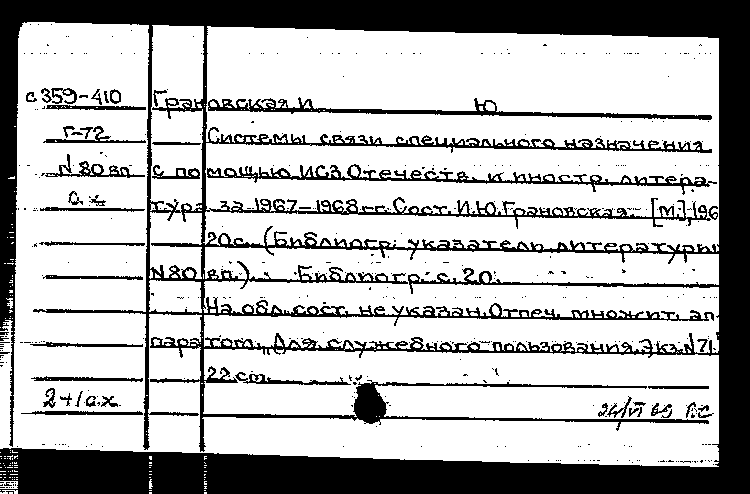 с359-410 Грановская, И. Ю.
Г-72 Системы связи специального назначения
N80вп с помощью ИСЗ. Отечеств. и иностр. литера-
с.х. тура за 1967–1968 гг. Сост. И.Ю. Грановская. [М.], 196
20с. (Библиогр. указатель литературы
N80 вп.). Библиогр: с. 20.
На обл. сост. не указан. Отпеч. множит. ап-
паратом. „Для служебного пользования. Экз. N71."
22 см.
2+1а.х 24/VI 69